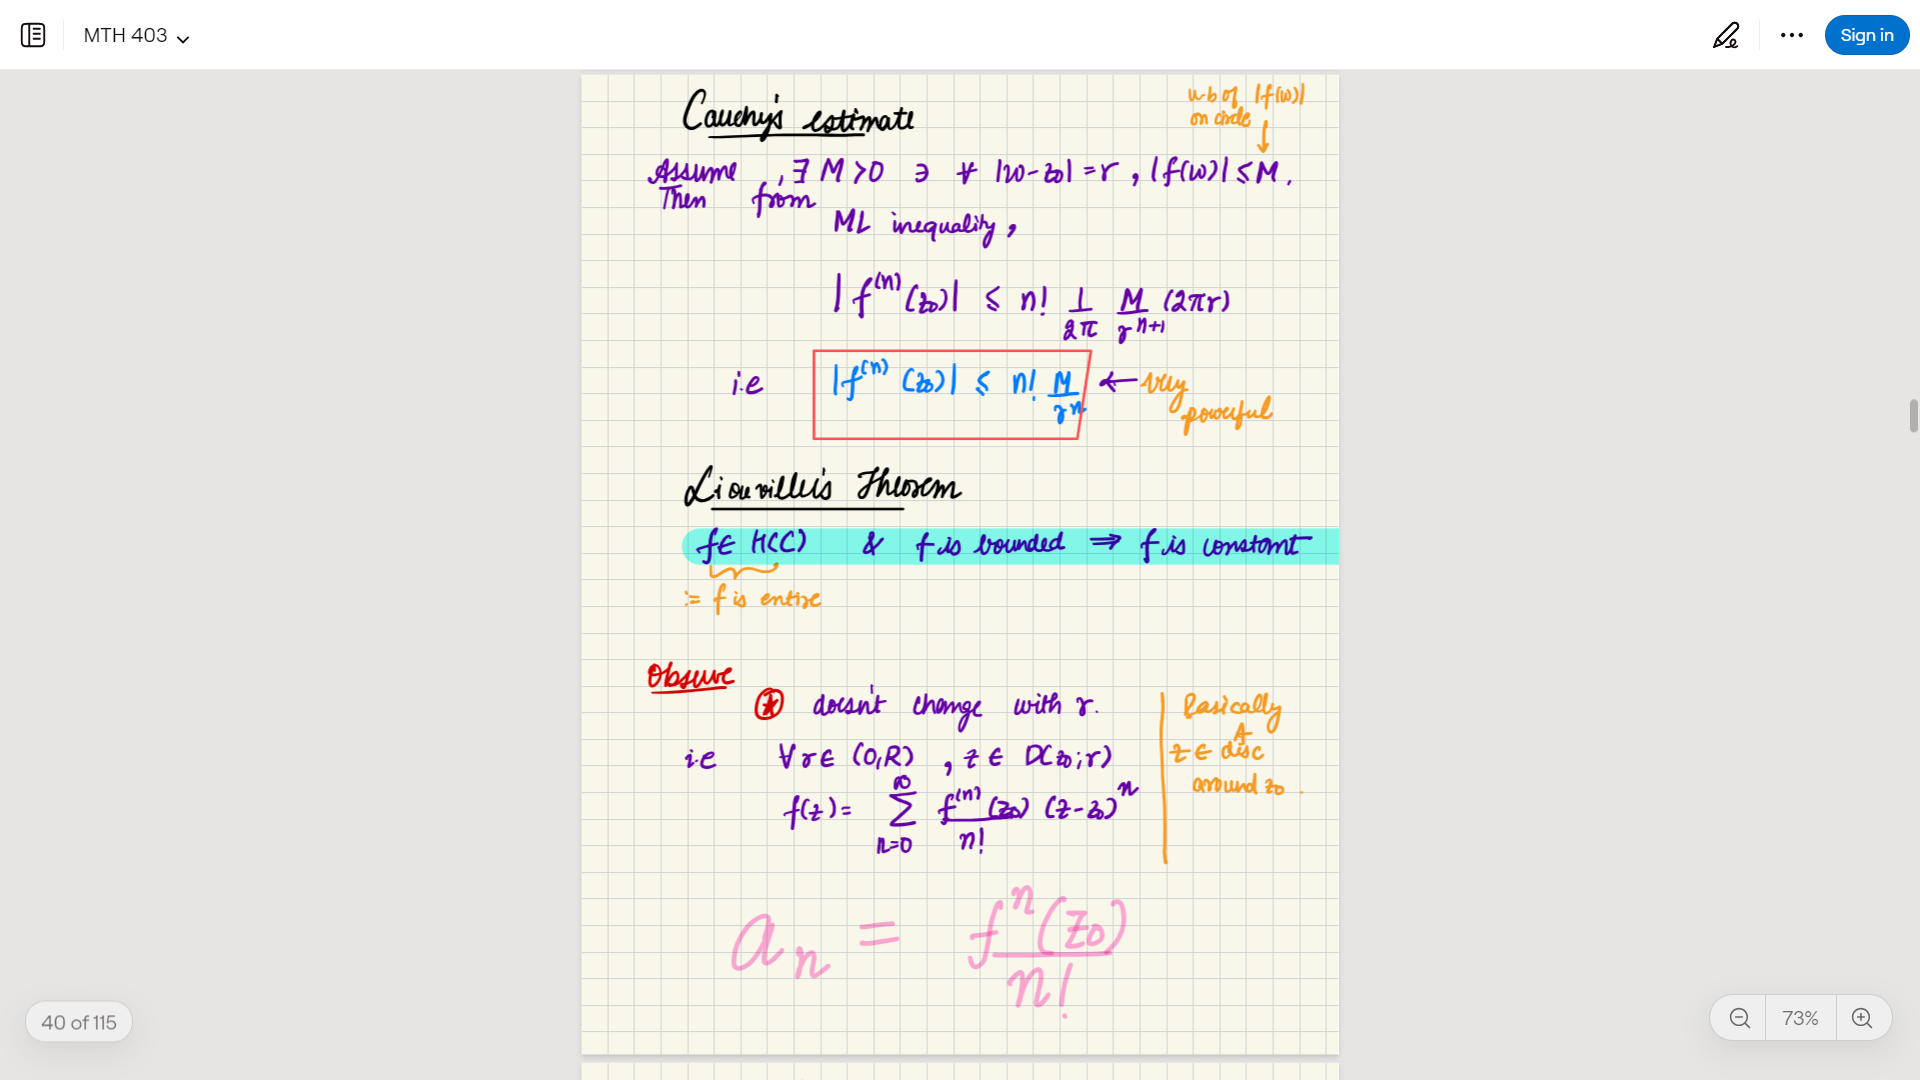 MTH 403
Sign in
Cauchy's estimate
u.b of |f(w)|
on circle
Assume , ∃ M >0 ∋ ∀ |w-z₀| = r , |f(w)| ≤ M .
Then from
ML inequality ,
|f⁽ⁿ⁾(z₀)| ≤ n! 1/2π M/rⁿ⁺¹ (2πr)
i.e |f⁽ⁿ⁾(z₀)| ≤ n! M/rⁿ ← very
powerful
Liouville's Theorem
f ∈ H(C) & f is bounded ⇒ f is constant
:= f is entire
Observe
* doesn't change with r.
Basically
i.e ∀ r ∈ (0,R) , z ∈ D(z₀; r)
z ∈ disc
around z₀ .
f(z) = ∞ Σ n=0 f⁽ⁿ⁾(z₀)/n! (z-z₀)ⁿ
aₙ = fⁿ(z₀)/n!
40 of 115
73%